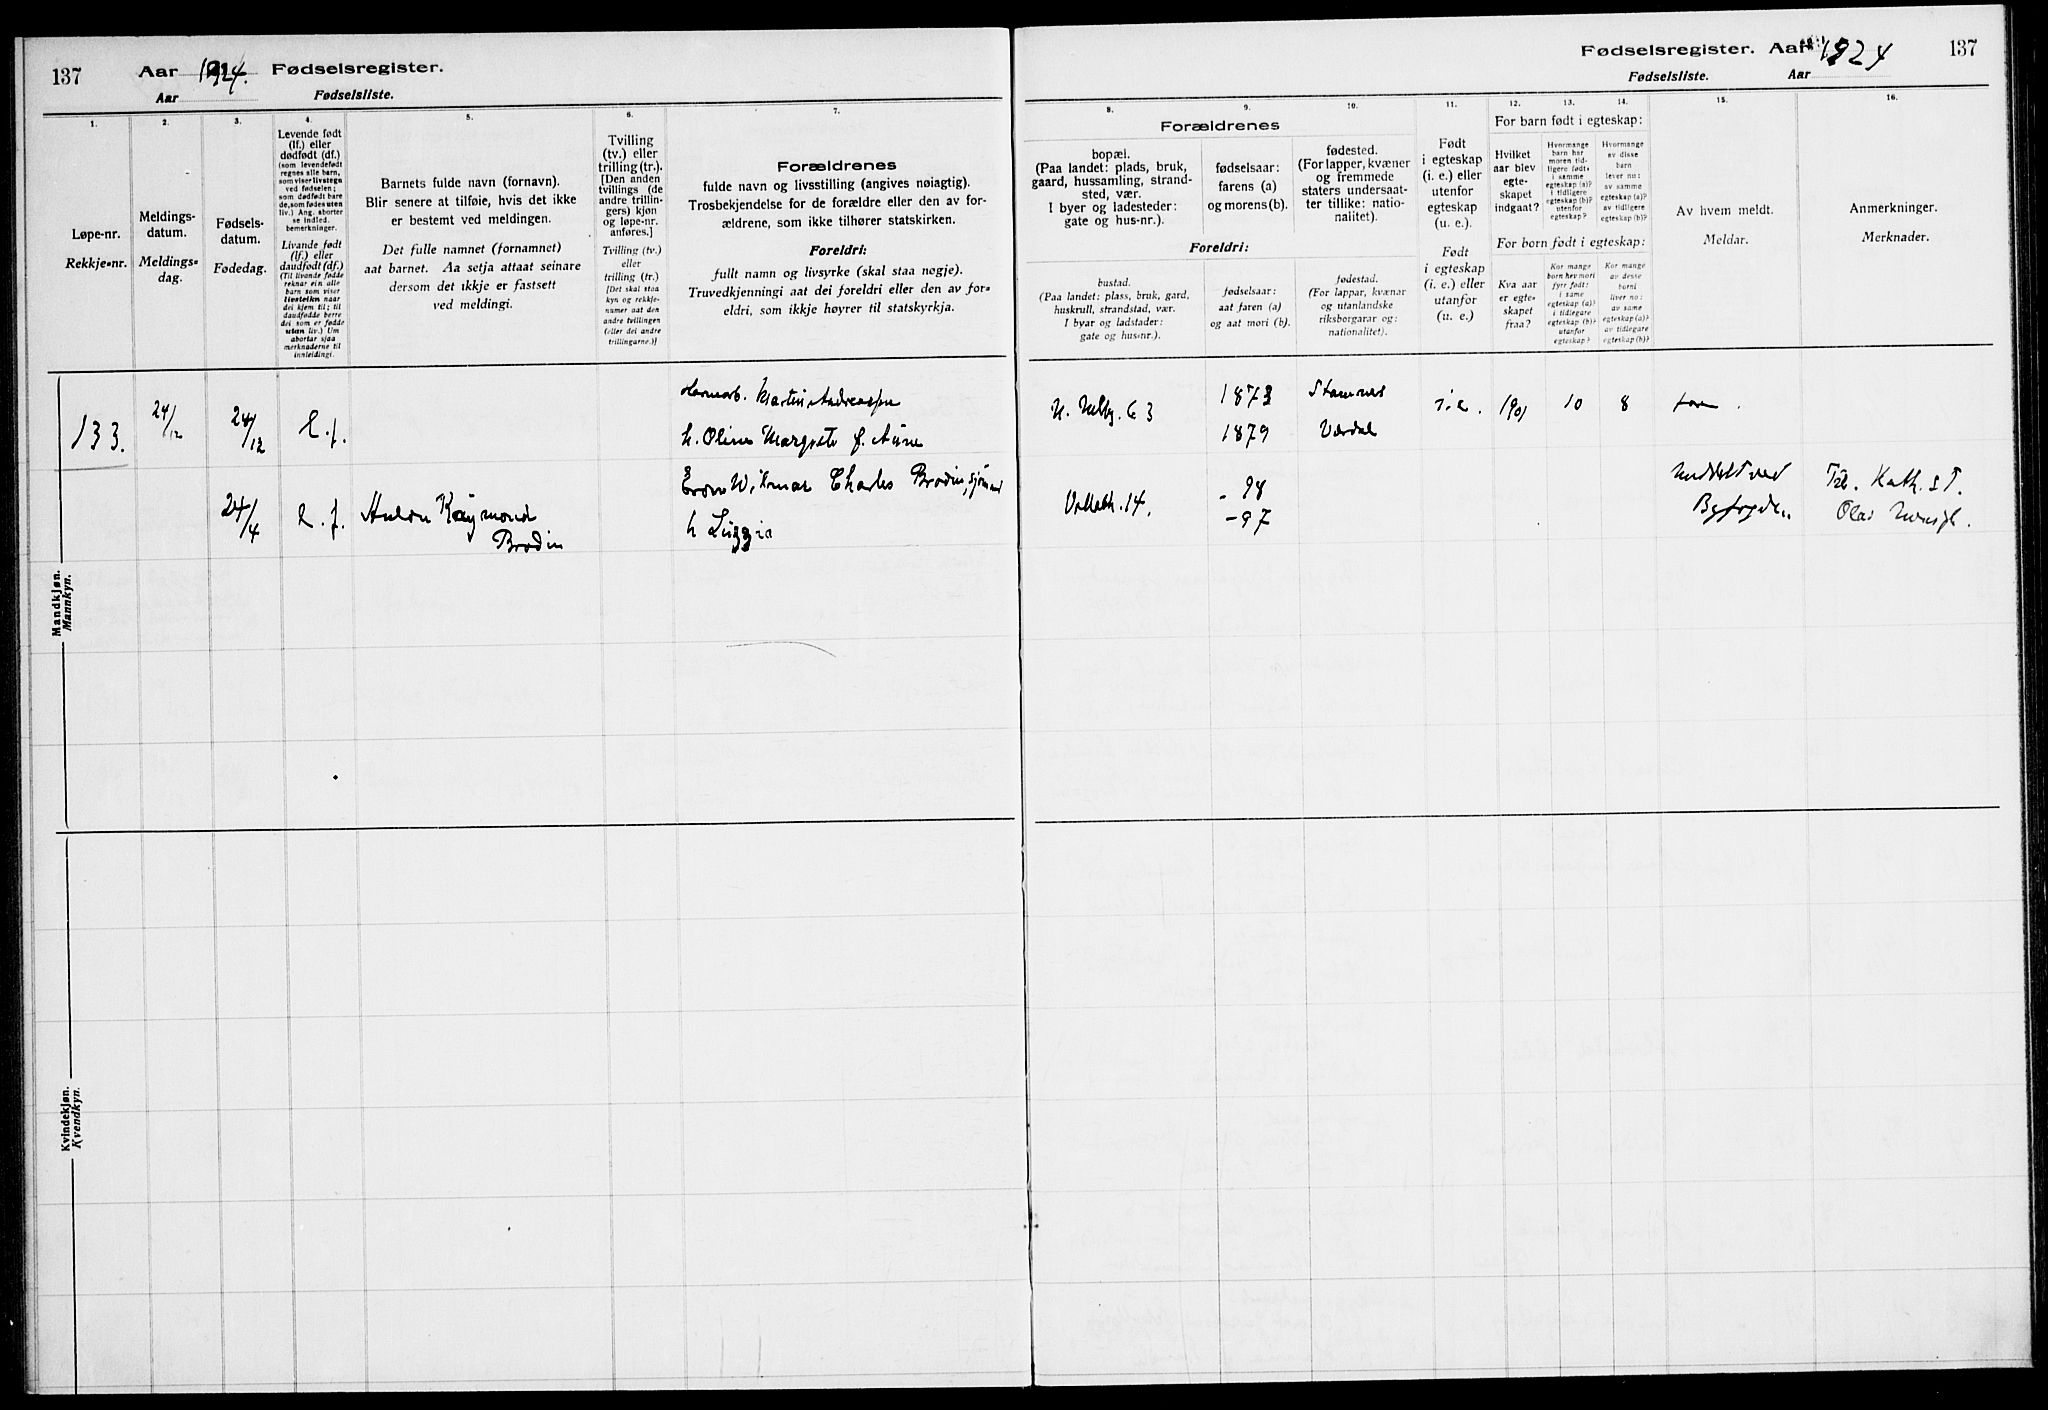 137
Aar 1924. Fødselsregister.
Aar Fødselsliste.
1.
Løpe-nr.
Rekkje-nr.
2.
Meldings-
datum.
Meldings-
dag.
3.
Fødsels-
datum.
Fødedag.
4.
Levende født
(lf.) eller
dødfødt (df.)
(som levendefødt
regnes alle barn,
som viser livstegn
ved fødselen;
som dødfødt bare
de, som fødes uten
liv.) Ang. aborter
se indled.
bemerkninger.
Livande født
(lf.) eller
daudfødt (df.)
(Til livende fødde
reknar ein alle
barn som viser
livsteikn naar
dei kjem til; til
daudfødde berre
dei som er fødde
utan liv.) Um
abortar sjaa
merknaderne til
innleidingi.
5.
Barnets fulde navn (fornavn).
Blir senere at tilføie, hvis det ikke
er bestemt ved meldingen.
Det fulle namnet (fornamnet)
aat barnet. Aa setja attaat seinare
dersom det ikkje er fastsett
ved meldingi.
6.
Tvilling
(tv.) eller
trilling (tr.).
[Den anden
tvillings (de
andre trillin-
gers) kjøn
og løpe-nr.
anføres.]
Tvilling (tv.)
eller
trilling (tr.)
[Det skal staa
kyn og rekkje-
numer aat den
andre tvillingen
(eller dei andre
trillingarne.)]
7.
Forældrenes
fulde navn og livsstilling (angives nøiagtig).
Trosbekjendelse for de forældre eller den av for-
ældrene, som ikke tilhører statskirken.
Foreldri:
fullt namn og livsyrke (skal staa nøgje).
Truvedkjenningi aat dei foreldri eller den av for-
eldri, som ikkje høyrer til statskyrkja.
Mandkjøn.
Mannkyn.
133. 24/12 24/12 L.f. Martin Andreassen
h. Oline Margrete f. Aune
24/4 L.f. Raymond
Brodin
Charles Brodin, sjømand
h
Kvindekjøn.
Kvendkyn.
Fødselsregister. Aar 1924 137
Fødselsliste. Aar
8.
Forældrenes
bopæl.
(Paa landet: plads, bruk,
gaard, hussamling, strand-
sted, vær.
I byer og ladesteder:
gate og hus-nr.).
Foreldri:
bustad.
(Paa landet: plass, bruk, gard,
huskrull, strandstad, vær.
I byar og ladstader:
gate og hus-nr.).
9.
fødselsaar:
farens (a)
og morens (b).
fødselsaar:
aat faren (a)
og aat mori (b).
10.
fødested.
(For lapper, kvæner
og fremmede
staters undersaat-
ter tillike: natio-
nalitet).
fødestad.
(For lappar, kvænar
og utanlandske
riksborgarar og:
nationalitet).
11.
Født
i egteskap
(i. e.) eller
utenfor
egteskap
(u. e.).
Født
i egteskap
(i. e.) eller
utanfor
(u. e.)
For barn født i egteskap:
12.
Hvilket
aar blev
egte-
skapet
indgaat?
13.
Hvormange
barn har
moren tid-
ligere født:
i samme
egteskap (a)?
i tidligere
egteskap (b)?
utenfor
egteskap?
14.
Hvormange
av disse
barn
lever nu:
av samme
egteskap (a)?
av tidligere
egteskap (b)?
For born født i egteskap:
Kva aar
er egte-
skapet
fraa?
Kor mange
born hev mori
fyrr født:
i same
egteskap (a)?
i tidlegare
egteskap (b)?
utanfor
egteskap?
Kor mange
av desse
borni
liver no:
av same
egteskap (a)?
av tidlegare
egteskap (b)?
15.
Av hvem meldt.
Meldar.
16.
Anmerkninger.
Merknader.
1873 Stamnes i.e. 1901 10 8 far.
1879 Værdal
14. - 98
- 97
Meddelt ved
Byfogden.